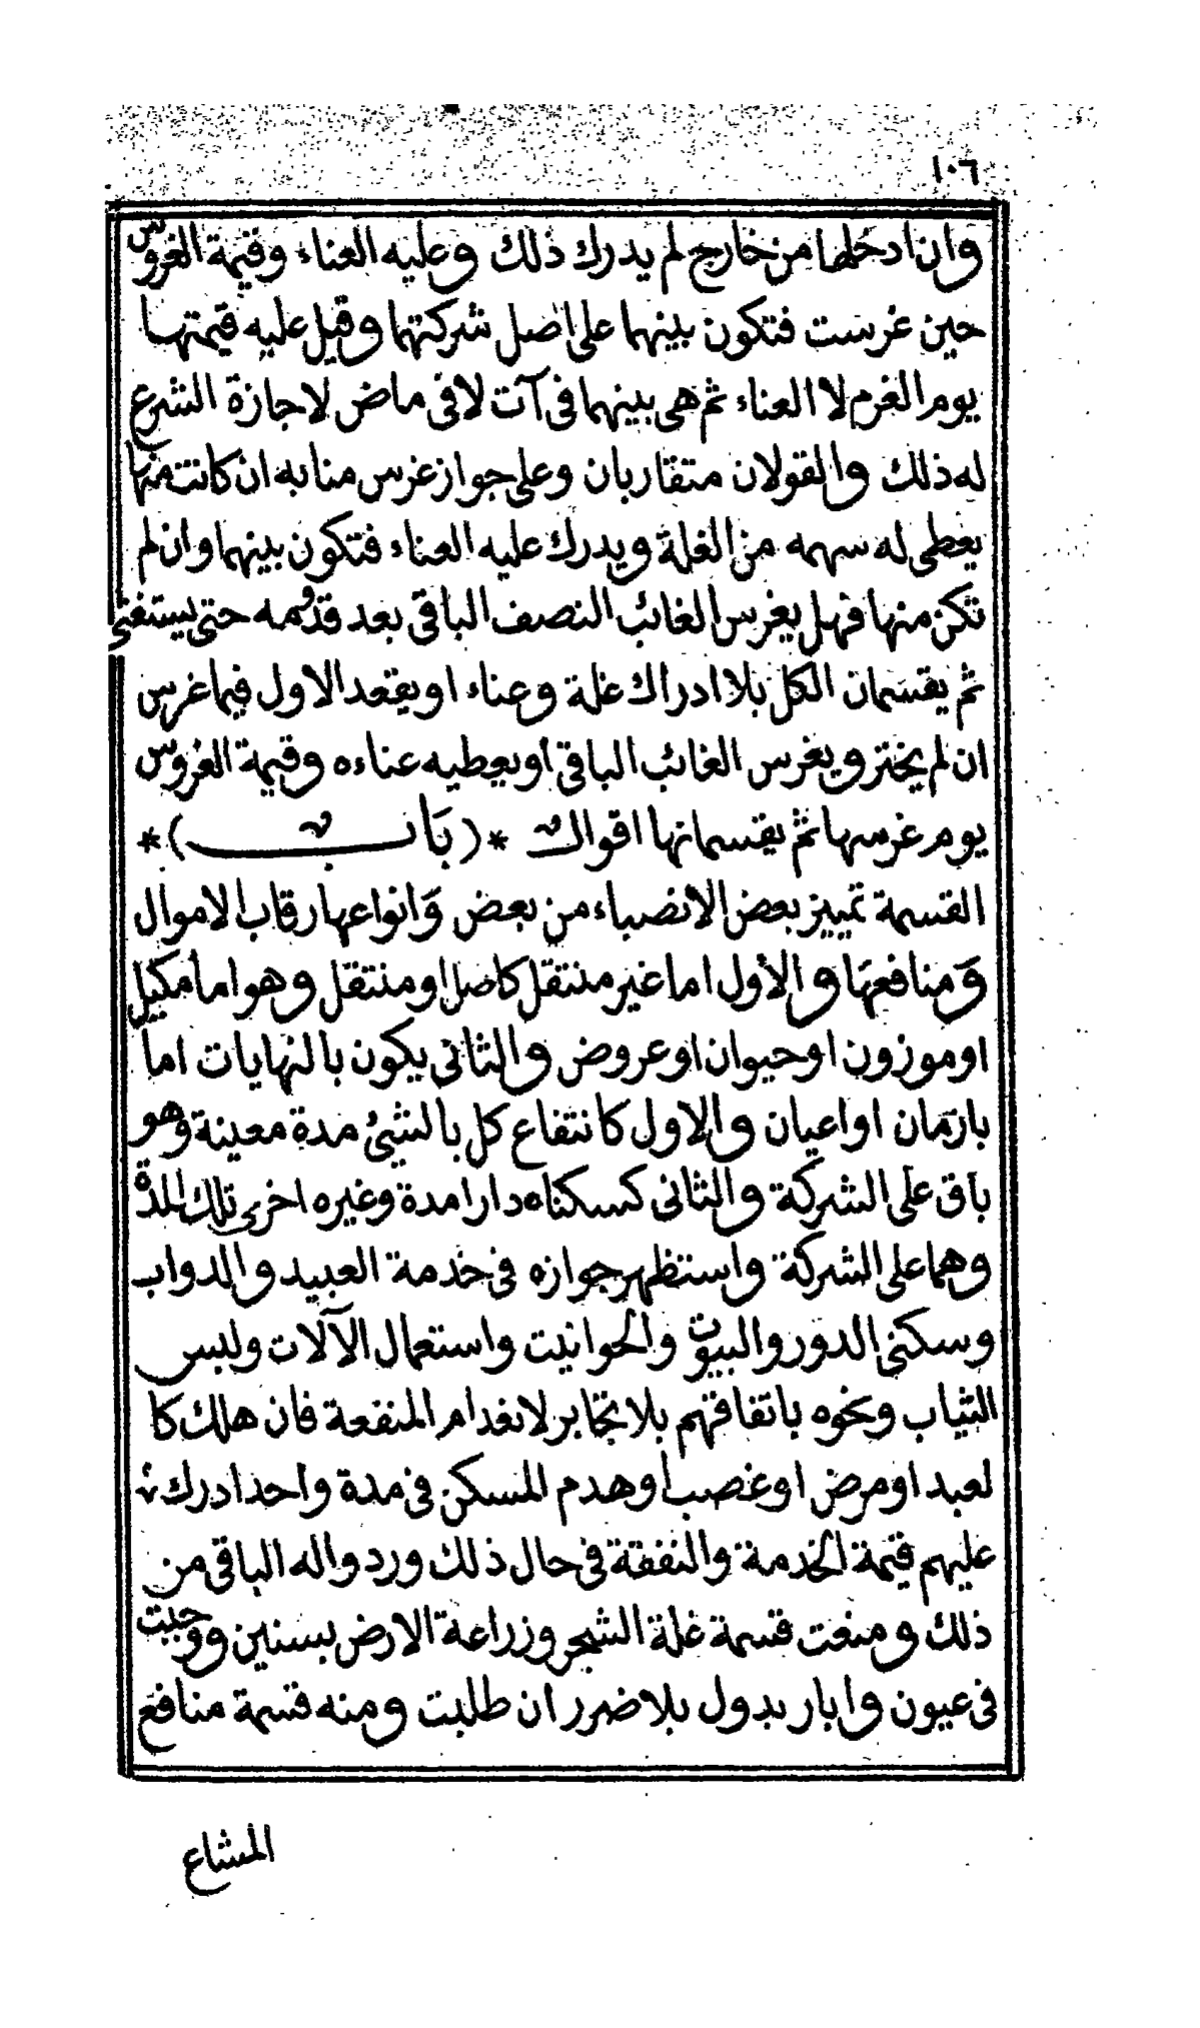 ١٠٦
وان ادخلها من خارج لم يدرك ذلك وعليه العناء وقيمة الغروس
حين غرست فتكون بينهما على اصل شركتهما وقيل عليه قيمتها
يوم الغرم لا العناء ثم هى بينهما فى آت لا فى ماض لاجازة الشرع
له ذلك والقولان متقاربان وعلى جواز غرس منابه ان كانت منها
يعطى له سهمه من الغلة ويدرك عليه العناء فتكون بينهما وان لم
تكن منها فهل يغرس الغائب النصف الباقى بعد قدومه حتى يستغنى
ثم يقتسمان الكل بلا ادراك غلة وعناء او يقعد الاول فيما غرس
ان لم يختر ويغرس الغائب الباقى او يعطيه عناءه وقيمة الغروس
يوم غرسها ثم يقتسمانها اقوال * (بَاب) *
القسمة تمييز بعض الانصباء من بعض وَانواعها رقاب الاموال
وَمنافعهَا والأول اما غير منتقل كاصل او منتقل وهو اما مكيل
او موزون او حيوان او عروض والثانى يكون بالنهايات اما
بازمان او اعيان والاول كانتفاع كل بالشئ مدة معينة وهو
باق على الشركة والثانى كسكناه دارا مدة وغيره اخرى تلك المدة
وهما على الشركة واستظهر جوازه فى خدمة العبيد والدواب
وسكنى الدور والبيوت والحوانيت واستعمال الآلات ولبس
الثياب ونحوه باتفاقهم بلا تجابر لانعدام المنفعة فان هلك كا
لعبد او مرض او غصب او هدم المسكن فى مدة واحد ادرك
عليهم قيمة الخدمة والنفقة فى حال ذلك وردوا له الباقى من
ذلك ومنعت قسمة غلة الشجر وزراعة الارض بسنين ووجبت
فى عيون وابار بدول بلا ضرر ان طلبت ومنه قسمة منافع
المشاع